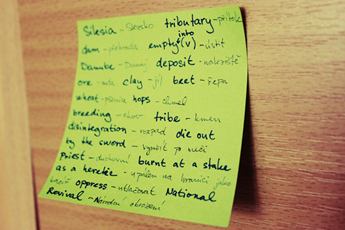 Silesia - Slezsko tributary - přítok
dam - přehrada empty into (v) - ústit
Danube - Dunaj deposit - naleziště
ore - ruda clay - jíl beet - řepa
wheat - pšenice hops - chmel
breeding - chov tribe - kmen
disintegration - rozpad die out
by the sword - vymřít po meči
Priest - duchovní burnt at a stake
as a heretic - upálen na hranici jako
kacíř oppress - utlačovat National
Revival - Národní obrození